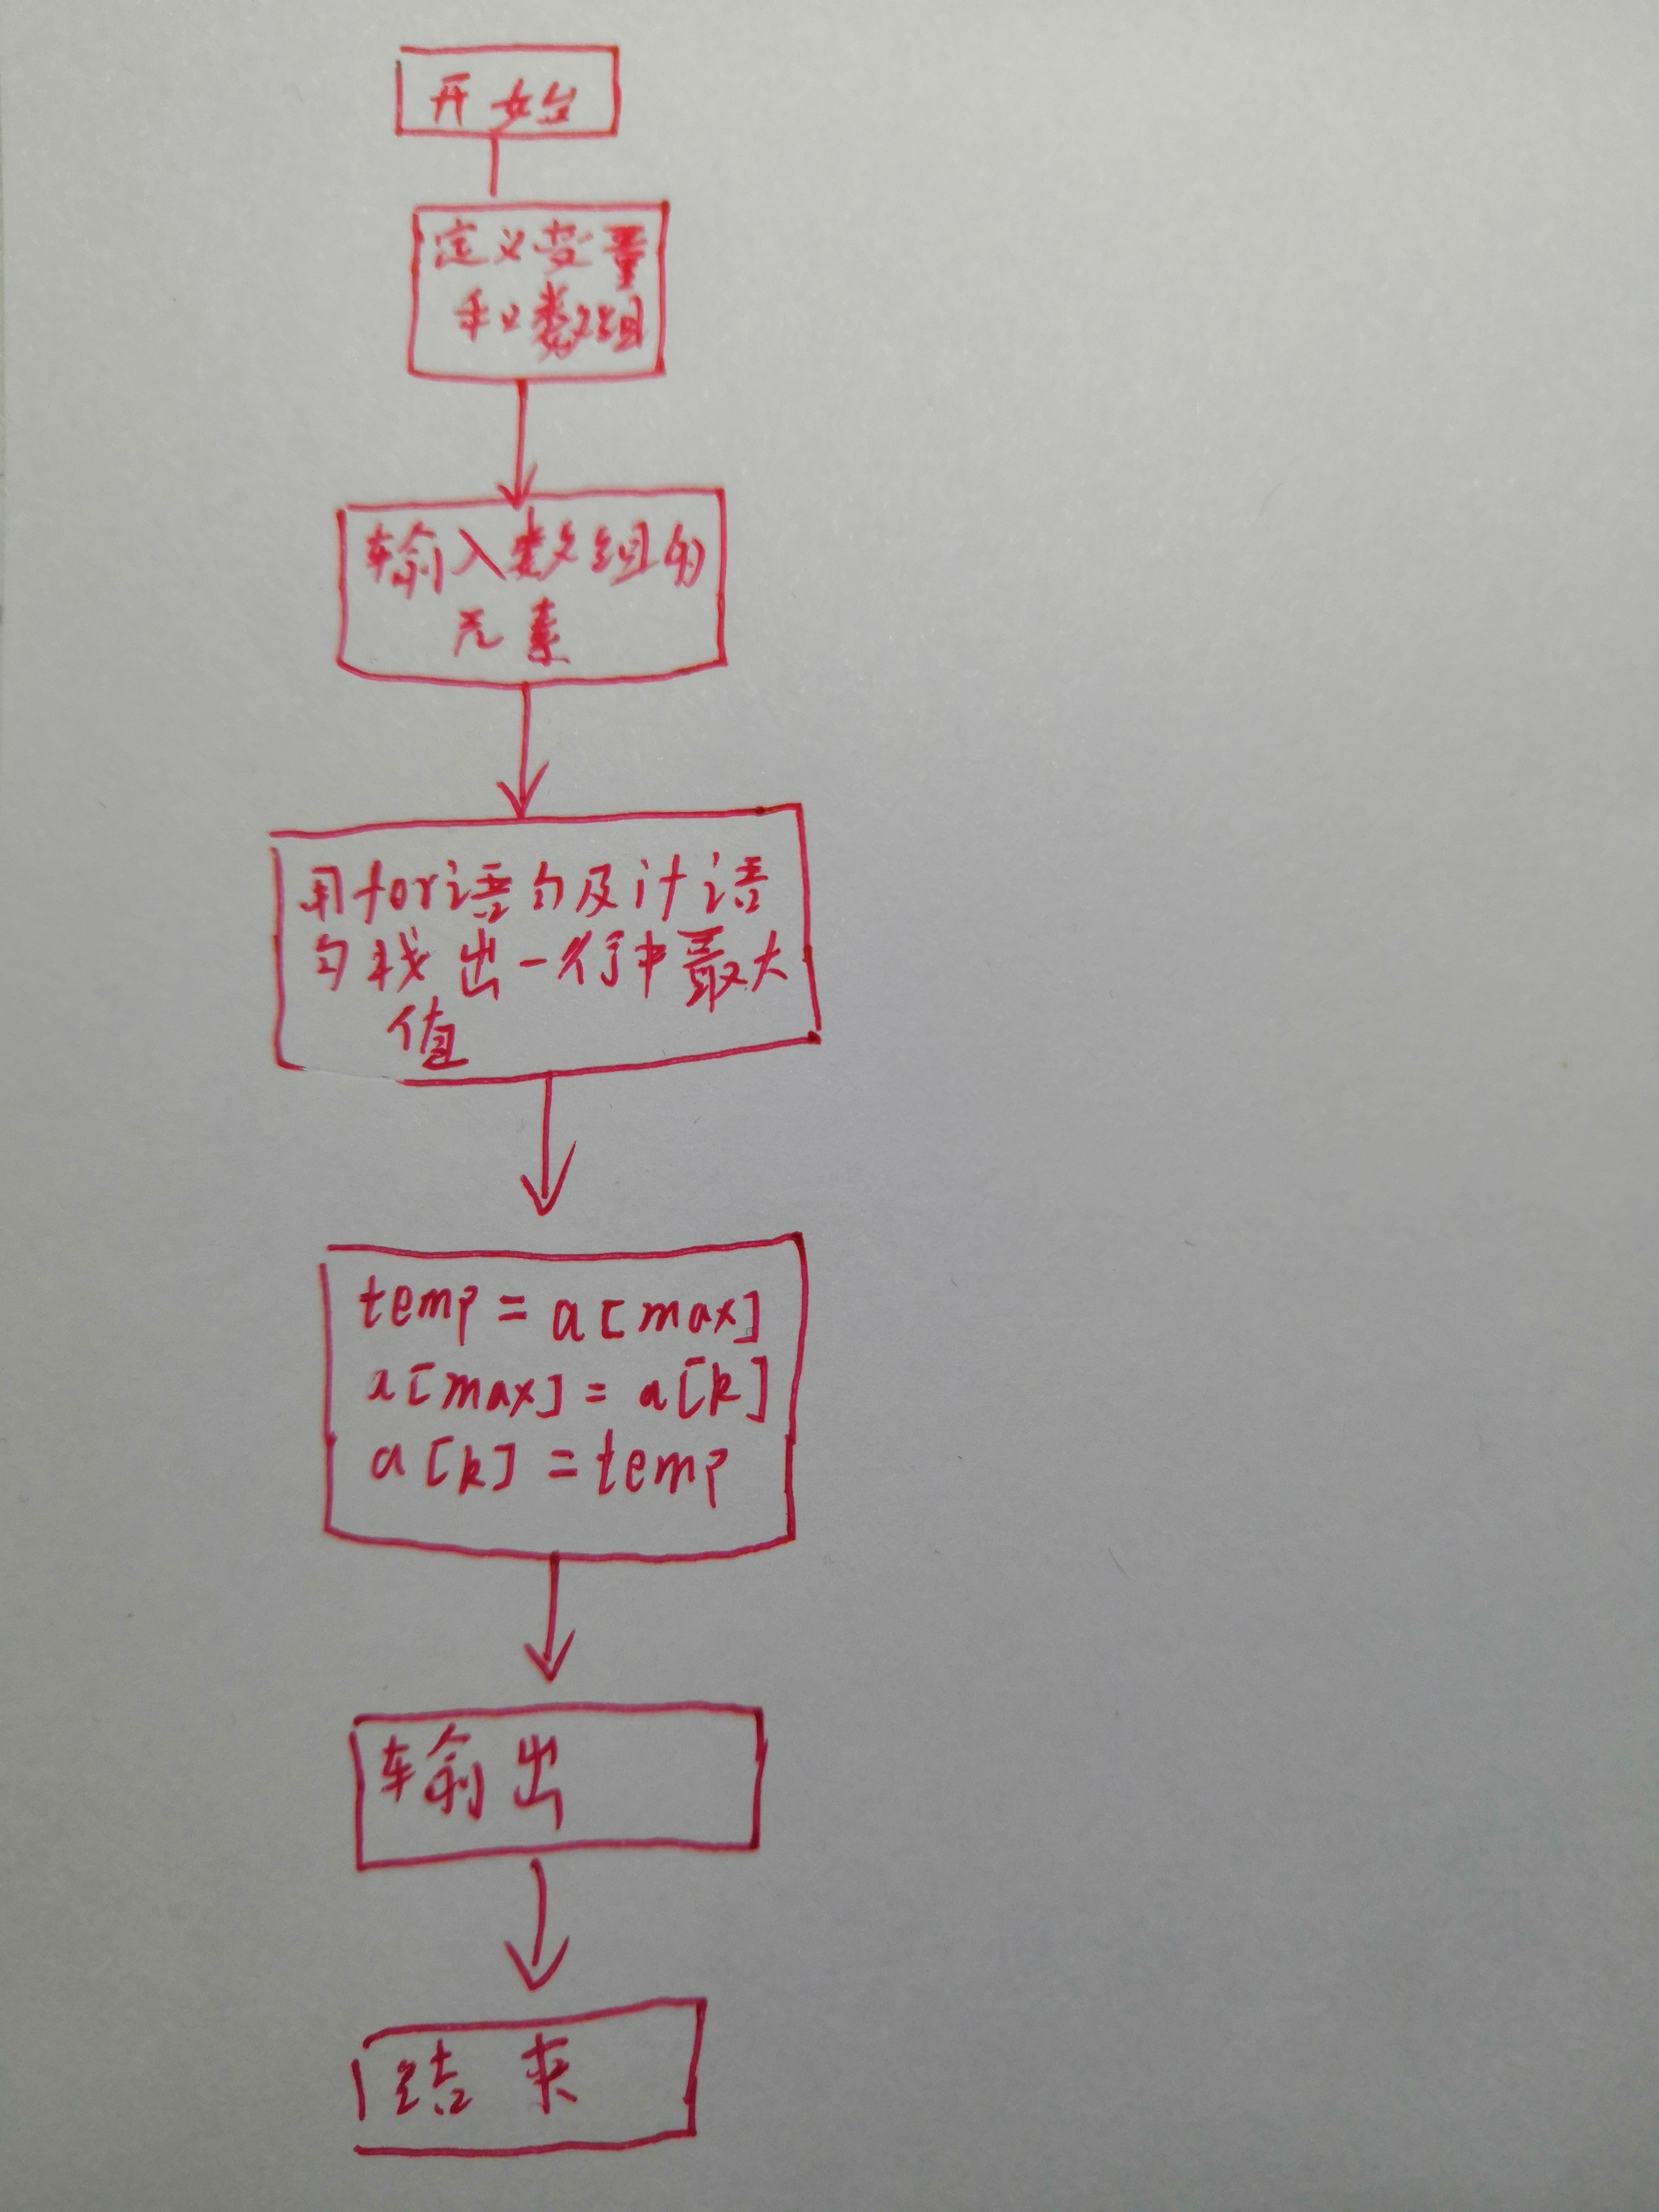 开始
定义变量
和数组
输入数组的
元素
用for语句及if语
句找出一行中最大
值
temp = a[max]
a[max] = a[k]
a[k] = temp
输出
结束